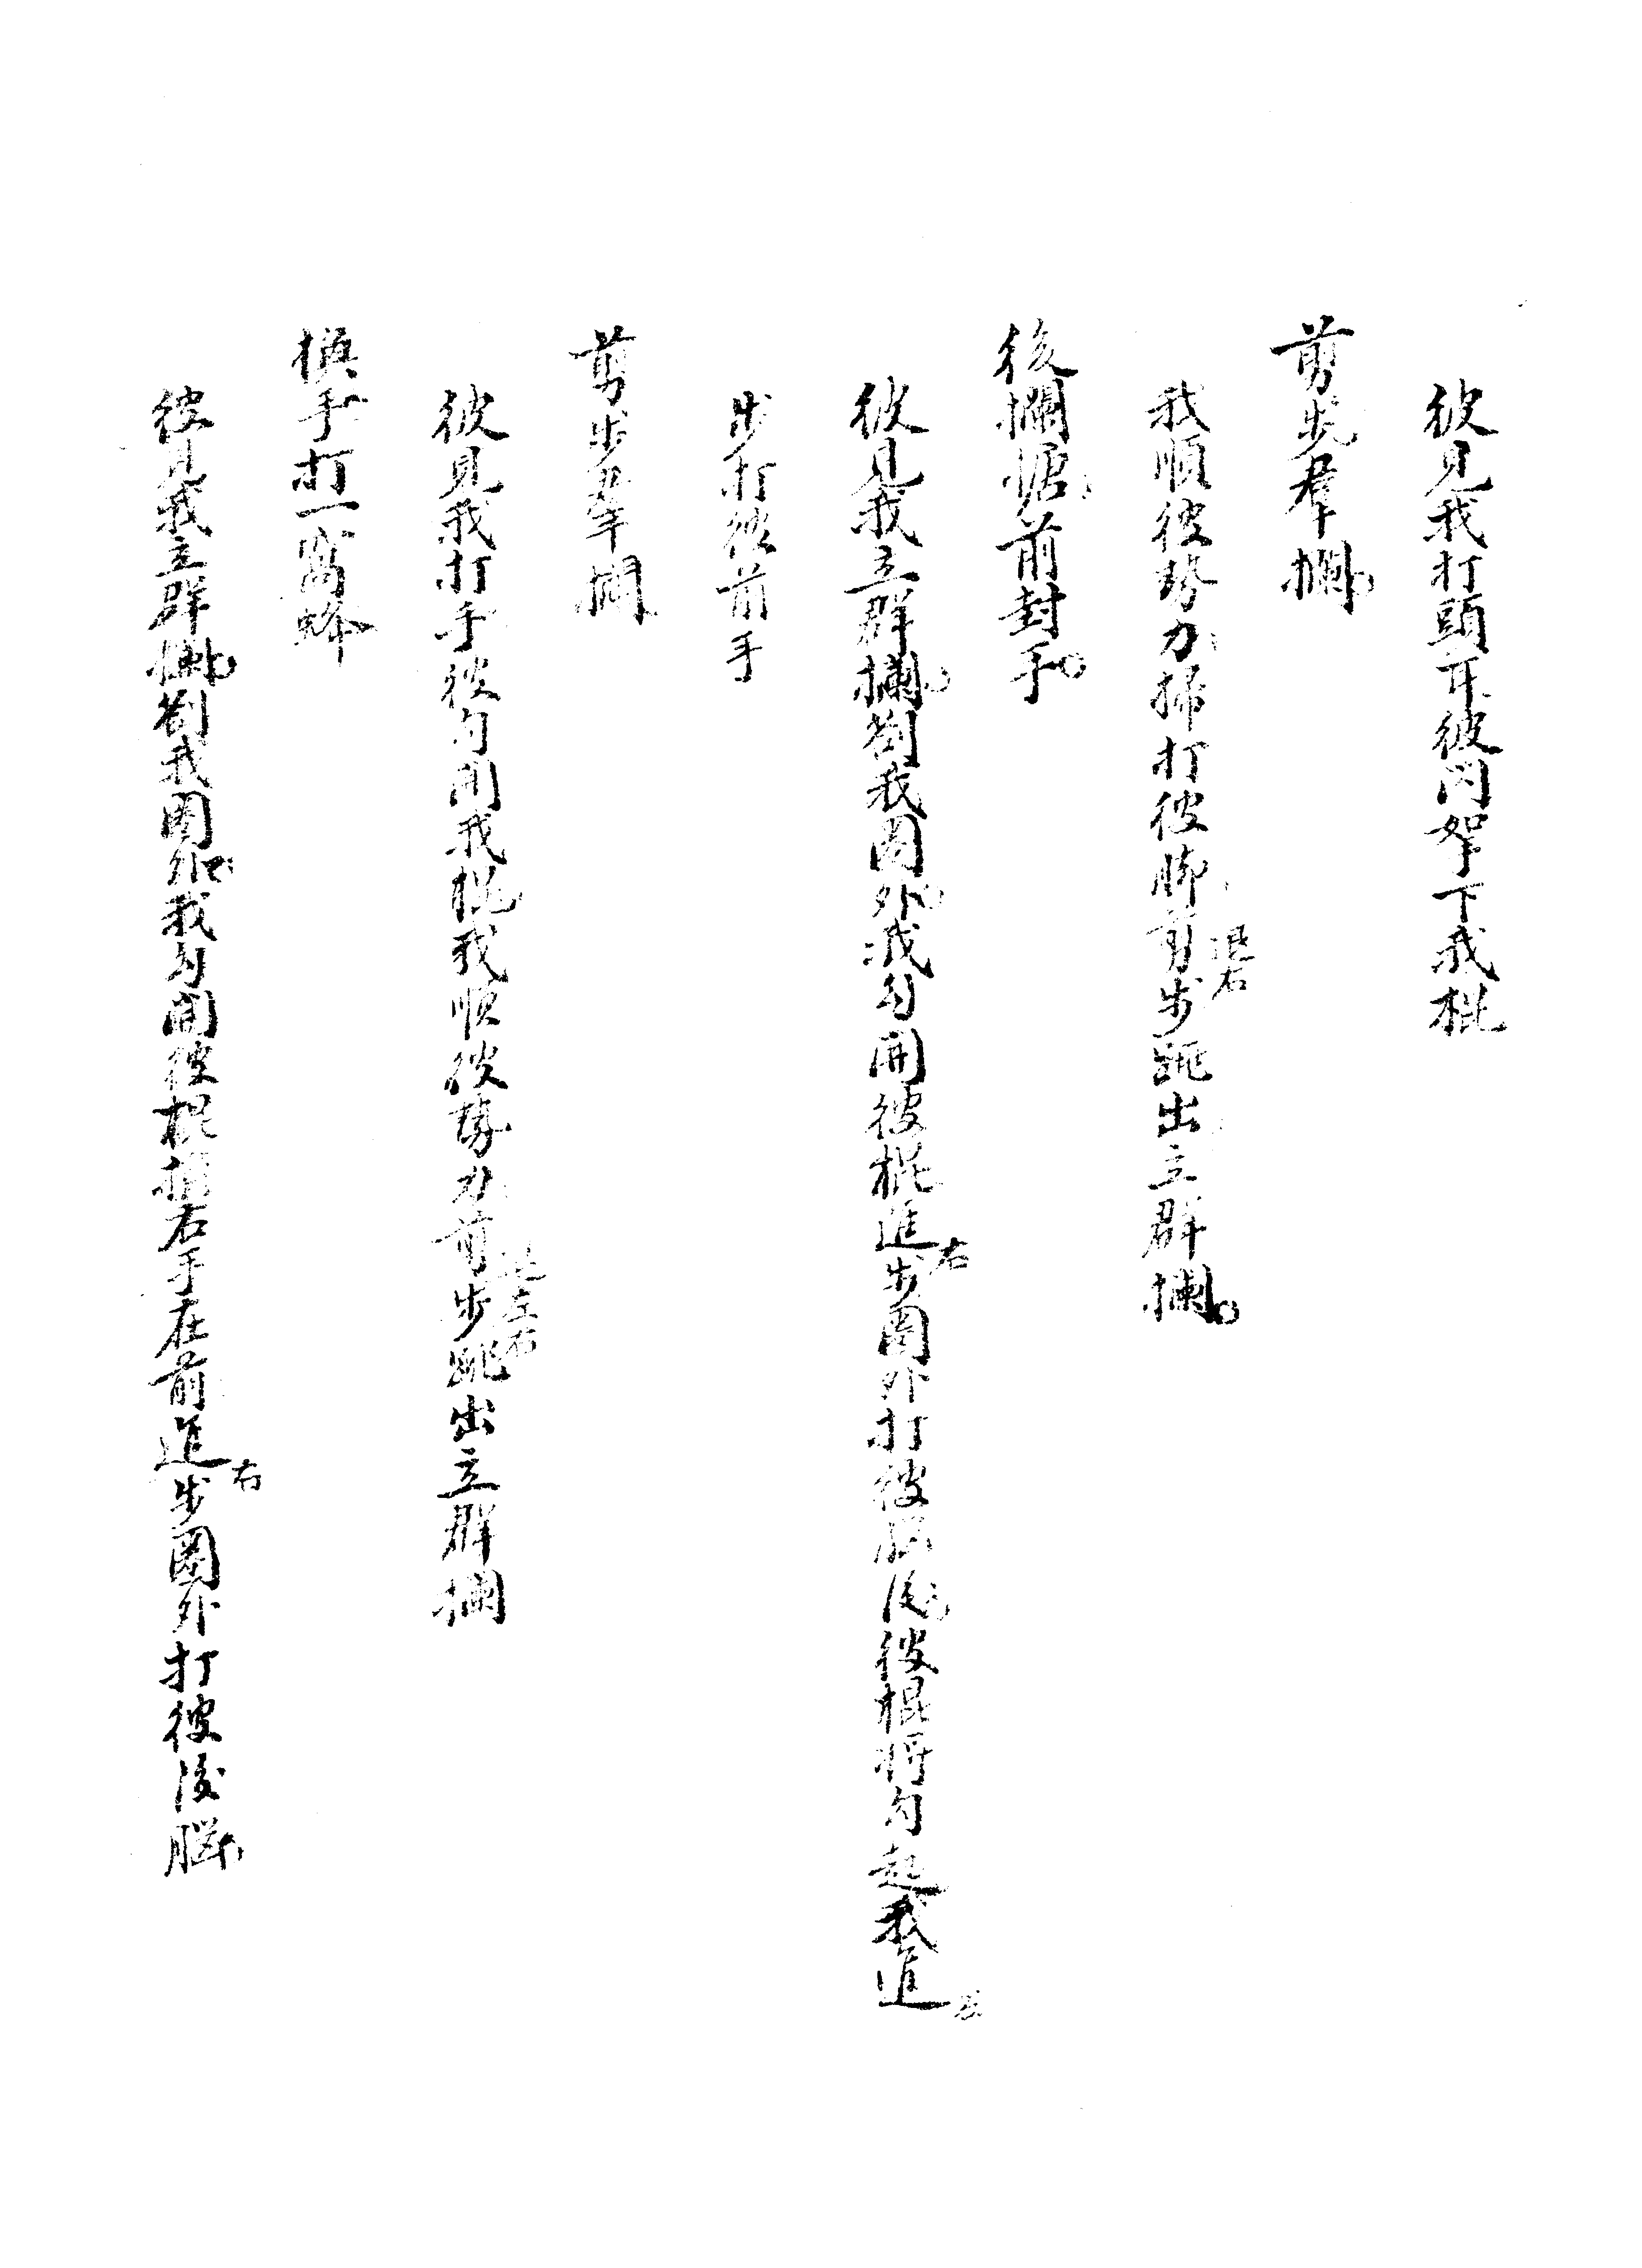 彼見我打頭耳彼閃拏下我棍
剪步群攔
我順彼勢力掃打彼脚剪步跳出立群攔
退右
後攔搪前封手
彼見我立群攔劄我圈外我勾開彼棍進步圈外打彼腦後彼棍將勾起我進
右
步打彼前手
剪步群攔
彼見我打手彼勾開我棍我順彼勢力剪步跳出立群攔
左右
換手打一窩蜂
彼見我立群攔劄我圈外我勾開彼棍換右手在前進步圈外打彼後腦
右